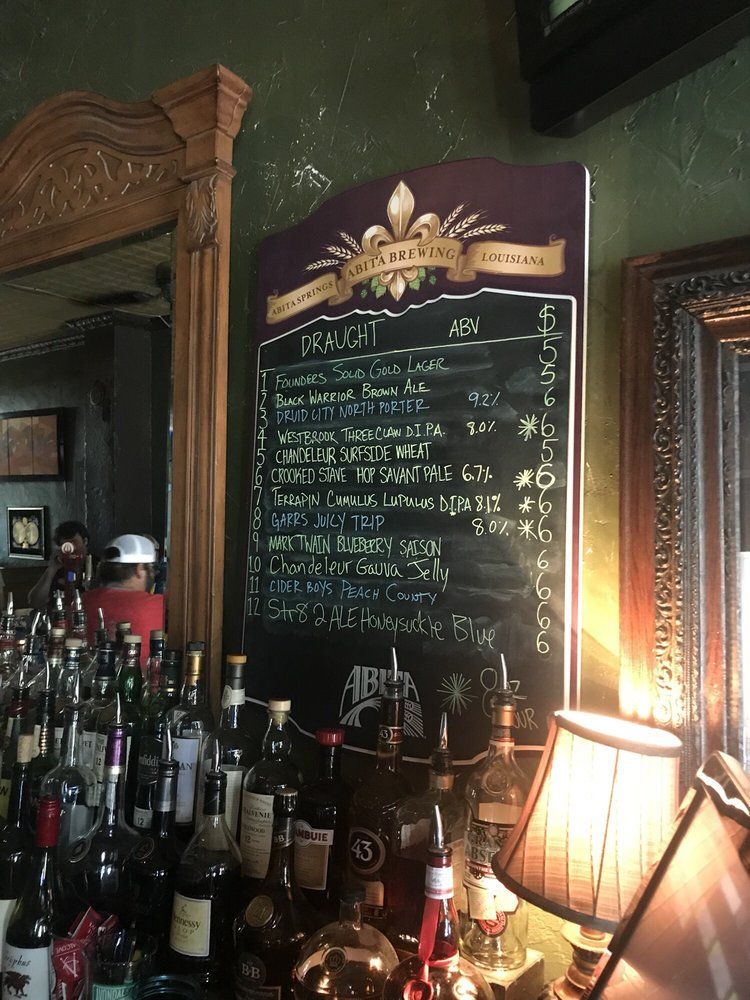 ABITA SPRINGS ABITA BREWING LOUISIANA
DRAUGHT ABV $
1 FOUNDERS SOLID GOLD LAGER 5
2 BLACK WARRIOR BROWN ALE 5
3 DRUID CITY NORTH PORTER 9.2% 6
4 WESTBROOK THREE CLAW D.I.PA. 8.0% * 6
5 CHANDELEUR SURFSIDE WHEAT 5
6 CROOKED STAVE HOP SAVANT PALE 6.7% * 6
7 TERRAPIN CUMULUS LUPULUS D.IPA 8.1% * 6
8 GARRS JUICY TRIP 8.0% * 6
9 MARK TWAIN BLUEBERRY SAISON 6
10 Chandeleur Gauva Jelly 6
11 CIDER BOYS PEACH COUNTY 6
12 Str8 2 ALE Honeysuckle Blue 6
ABITA
* 8oz
43
43
Hennessy
B&B
B&B